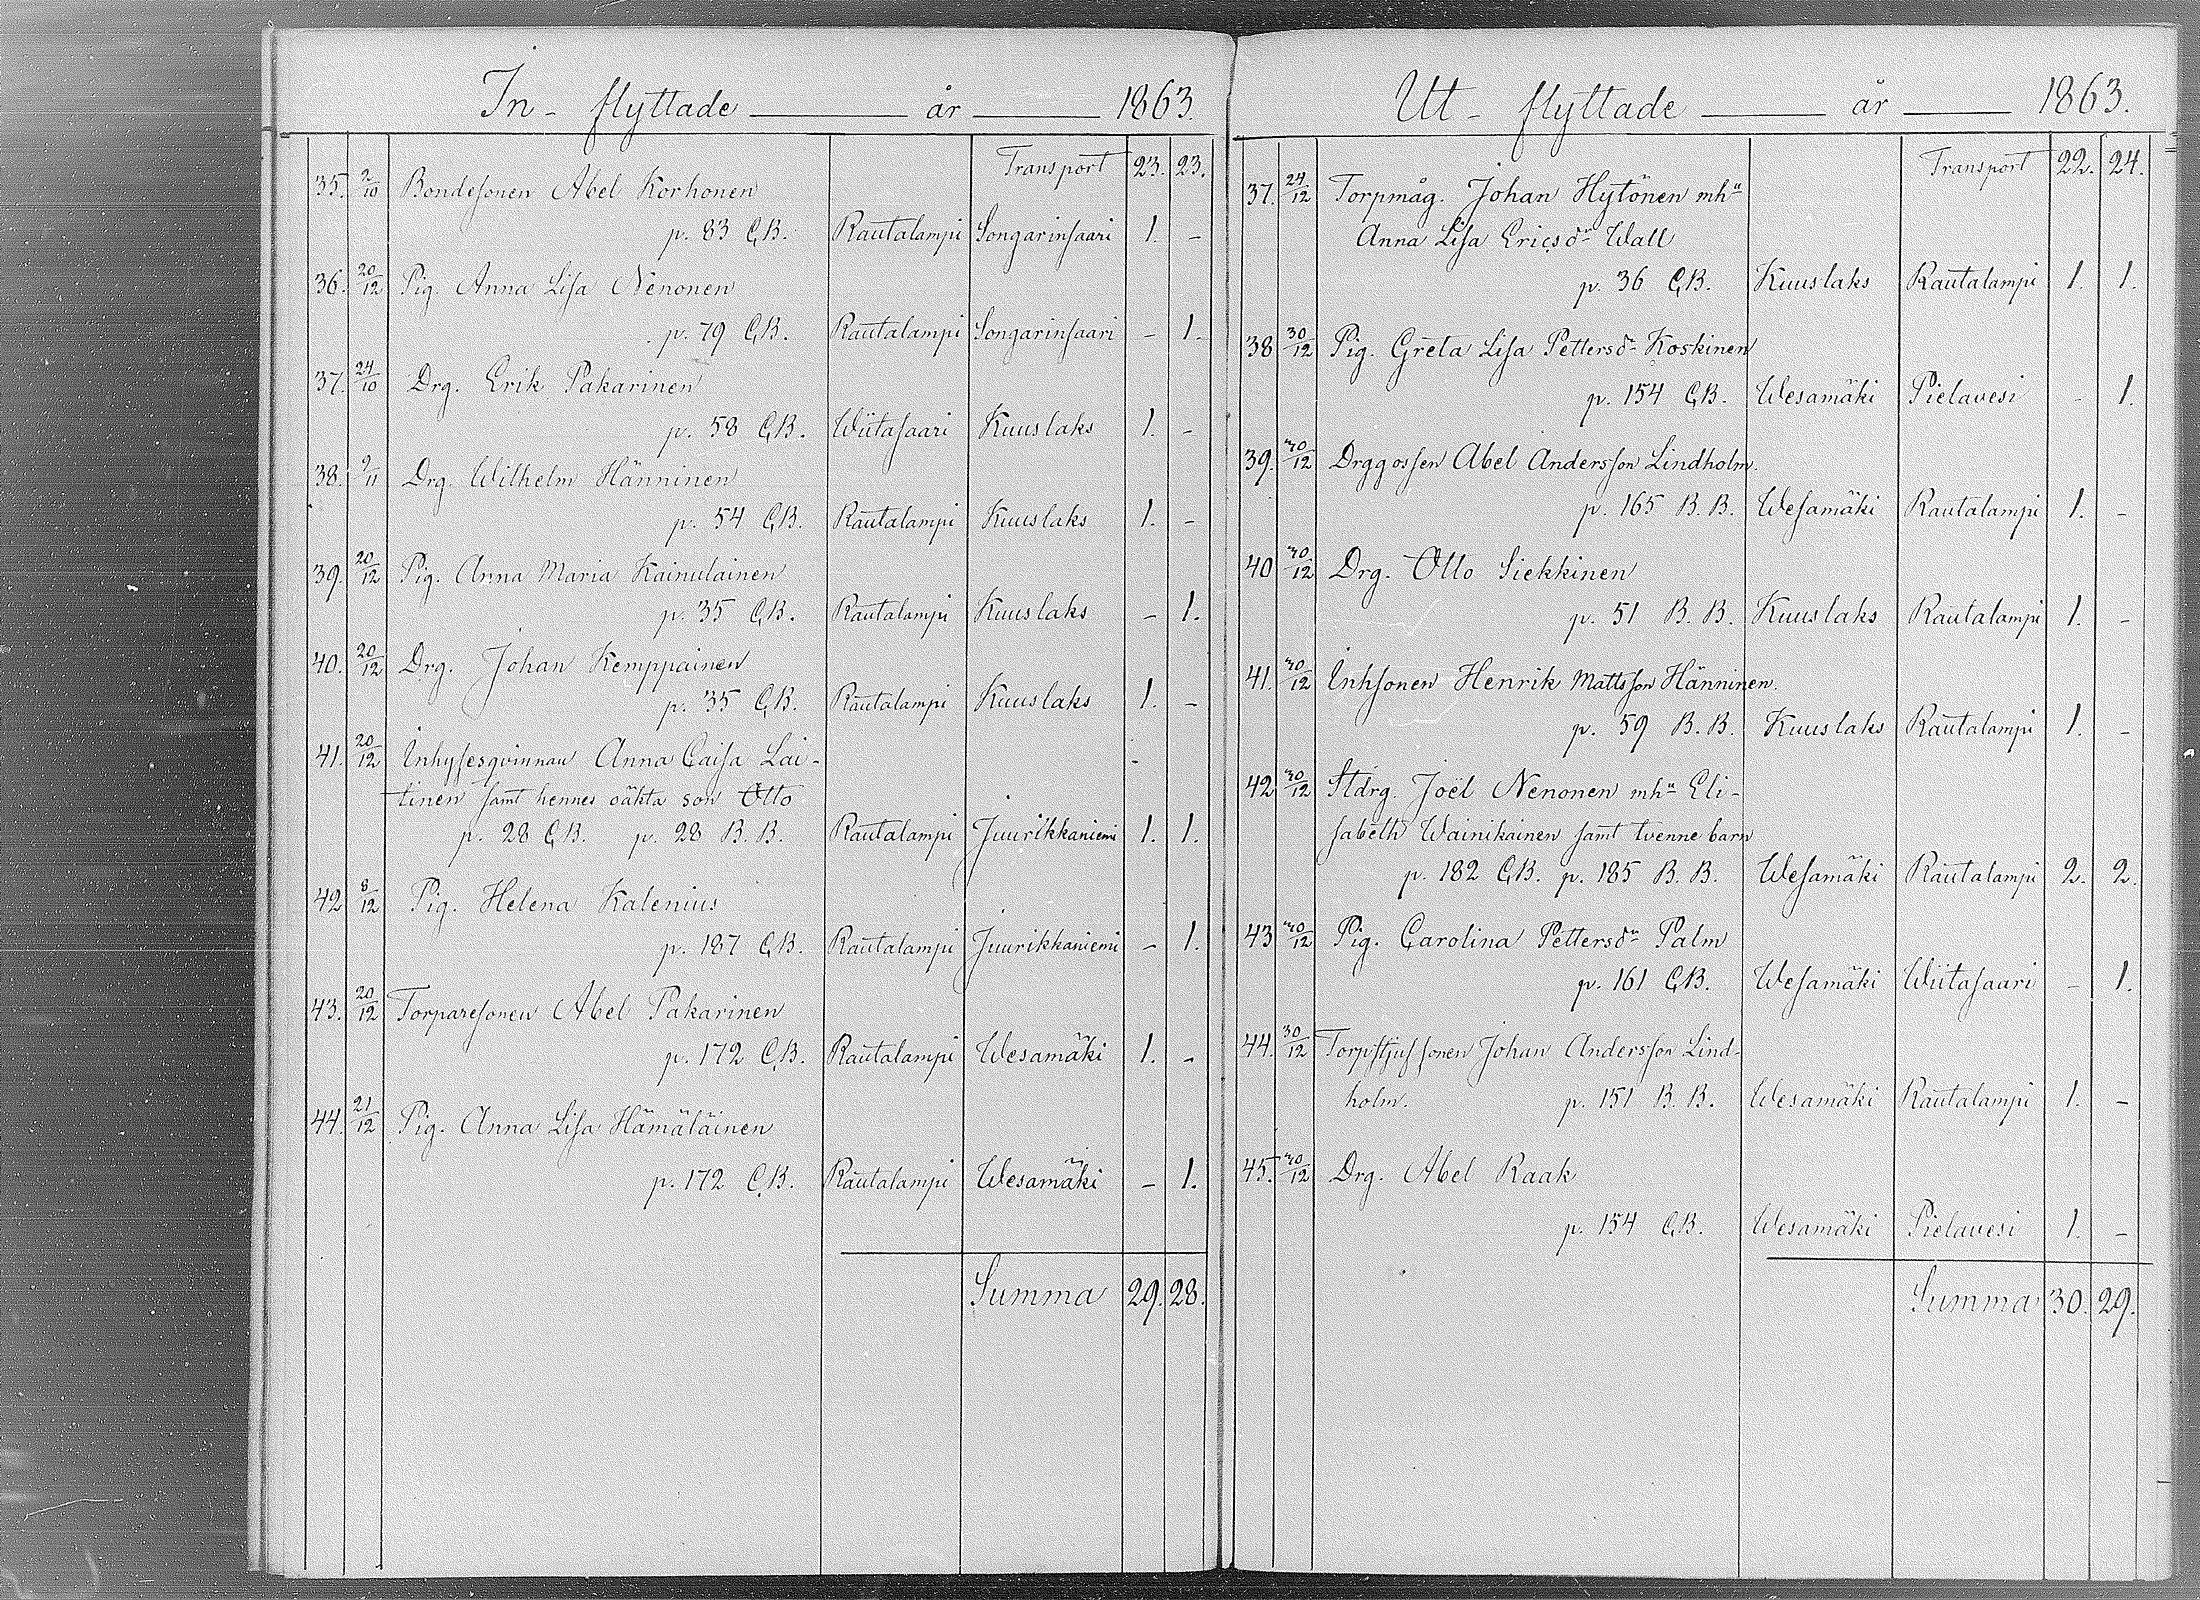 In- flyttade år 1863.
Transport 23. 23.
35. 2/10 Bondesonen Abel Korhonen
p. 83 C.B. Rautalampi Songarinsaari 1. -
36. 20/12 Pig. Anna Lisa Nenonen
p. 79 C.B. Rautalampi Songarinsaari - 1.
37. 24/10 Drg. Erik Pakarinen
p. 58 C.B. Wiitasaari Kuuslaks 1. -
38. 9/11 Drg. Wilhelm Hänninen
p. 54 C.B. Rautalampi Kuuslaks 1. -
39. 20/12 Pig. Anna Maria Kainulainen
p. 35 C.B. Rautalampi Kuuslaks - 1.
40. 20/12 Drg. Johan Kemppainen
p. 35 C.B. Rautalampi Kuuslaks 1. -
41. 20/12 Inhysesqvinnan Anna Caisa Lai-
tinen samt hennes oäkta son Otto
p. 28 C.B. p. 28 B.B. Rautalampi Juurikkaniemi 1. 1.
42 8/12 Pig. Helena Kalenius
p. 187 C.B. Rautalampi Juurikkaniemi - 1.
43. 20/12 Torparesonen Abel Pakarinen
p. 172 C.B. Rautalampi Wesamäki 1. -
44. 21/12 Pig. Anna Lisa Hämäläinen
p. 172 C.B. Rautalampi Wesamäki - 1.
Summa 29. 28.
Ut- flyttade år 1863.
Transport 22. 24.
37. 24/12 Torpmåg. Johan Hytönen mhu
Anna Lisa Ericsdr Wall
p. 36 C.B. Kuuslaks Rautalampi 1. 1.
38 30/12 Pig. Greta Lisa Pettersdr Koskinen
p. 154 C.B. Wesamäki Pielavesi - 1.
39. 30/12 Drggossen Abel Andersson Lindholm.
p. 165 B.B. Wesamäki Rautalampi 1. -
40 30/12 Drg. Otto Siekkinen
p. 51 B.B. Kuuslaks Rautalampi 1. -
41. 30/12 Inhsonen Henrik Mattsson Hänninen.
p. 59 B.B. Kuuslaks Rautalampi 1. -
42 30/12 Stdrg. Joël Nenonen mhu Eli-
sabeth Wainikainen samt tvenne barn
p. 182 C.B. p. 185 B.B. Wesamäki Rautalampi 2. 2.
43 30/12 Pig. Carolina Pettersdr Palm
p. 161 C.B. Wesamäki Wiitasaari - 1.
44. 30/12 Torpstjufsonen Johan Andersson Lind-
holm. p. 151 B.B. Wesamäki Rautalampi 1. -
45. 30/12 Drg. Abel Raak
p. 154 C.B. Wesamäki Pielavesi 1. -
Summa 30. 29.